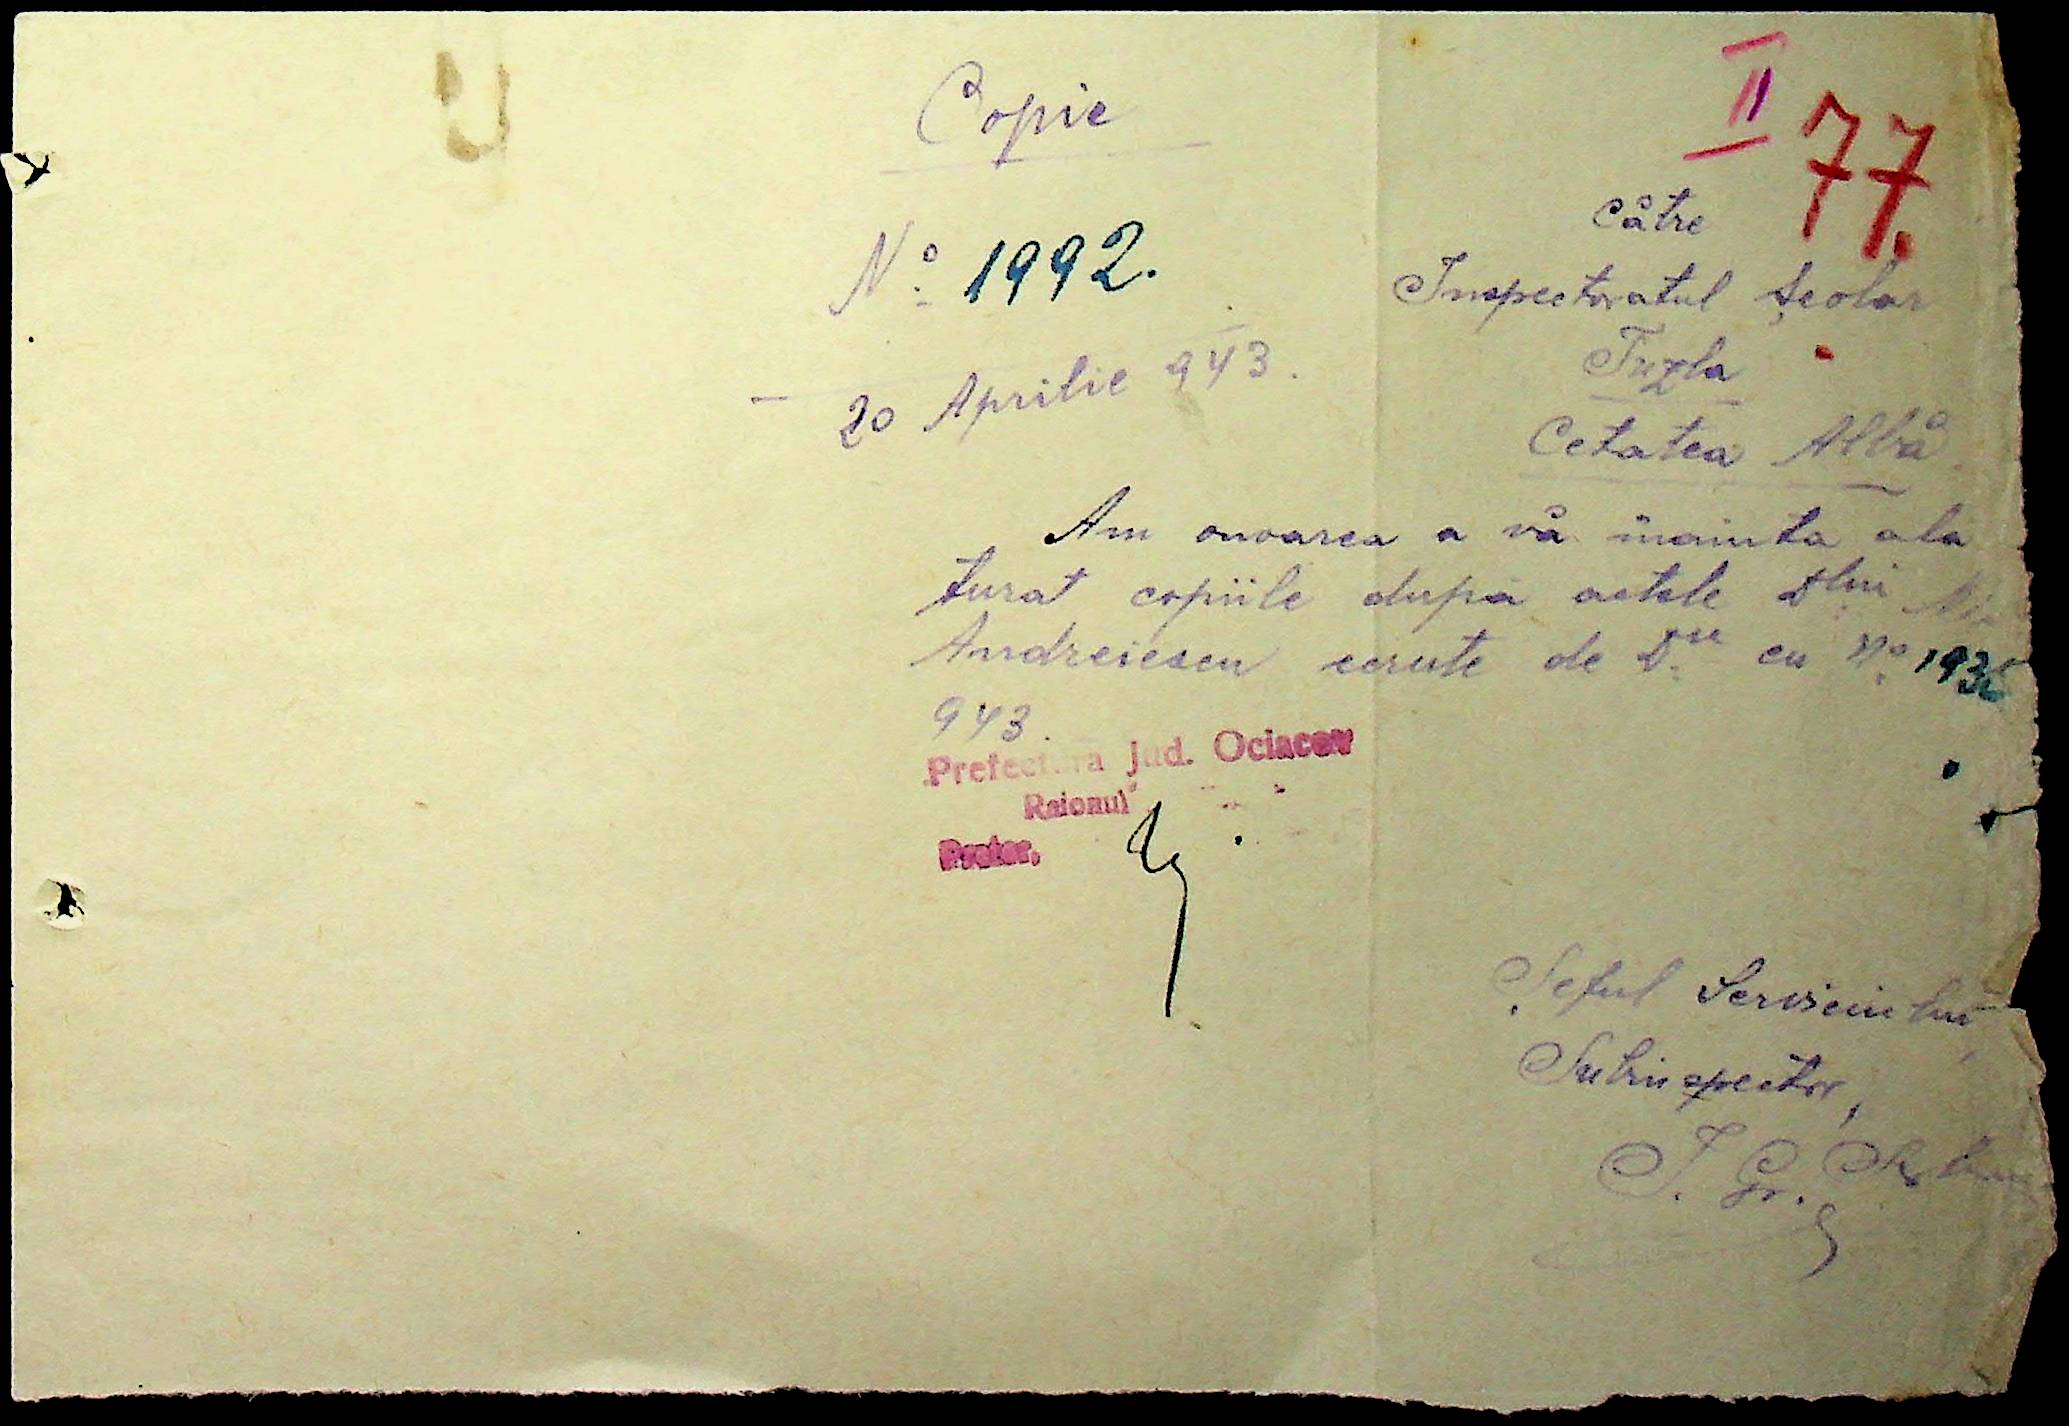 Copie
II 77.
Nº 1992.
20 Aprilie 943.
Către
Inspectoratul Școlar
Tuzla
Cetatea Albă
Am onoarea a vă inainta ala
turat copiile dupa actele Dlui
Andreiescu cerute de Dsa cu Nº
943.
Prefectura Jud. Ociacov
Raionul
Pretor,
Șeful Serviciului
Subinspector,
I. Gr.